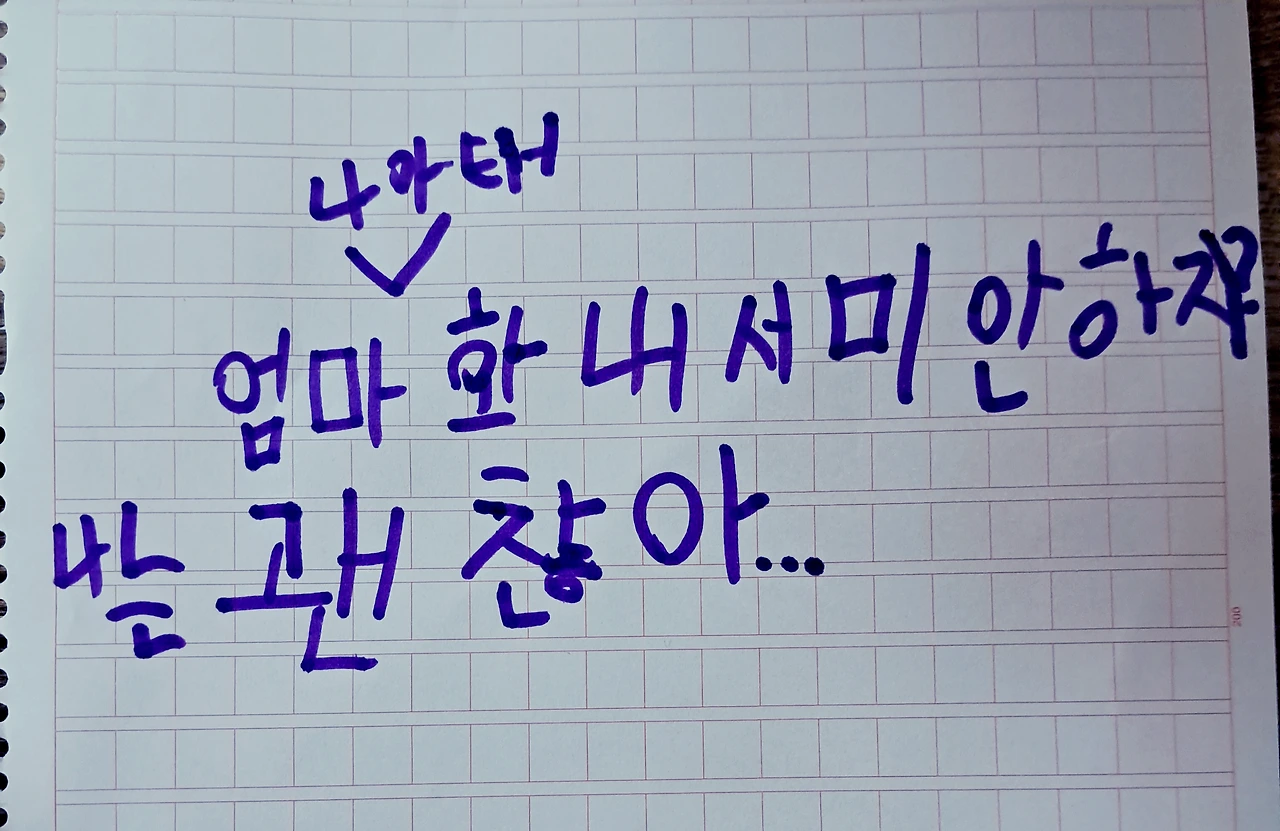 나아태
엄마 환내서미안하쟈?
나는괜찮아...
200